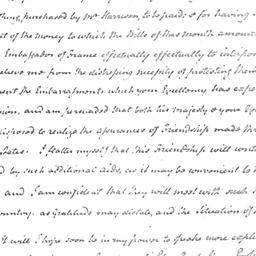 thing purchased by Mr Harrison, to be paid; & for having
of the money to which the Bills of this Month amount
Embassador of France effectually effectually to interpose
relieve me from the distressing necessity of protesting them
the Embarrassments which your Excellency has
and am persuaded that both his majesty & your
disposed to realize the assurances of Friendship made
States. I flatter myself that this Friendship will
by such additional aids, as it may be convenient to
and I am confident that they will meet with such
Country: as Gratitude may dictate, and the situation of
I will I hope soon be in my power to speak more